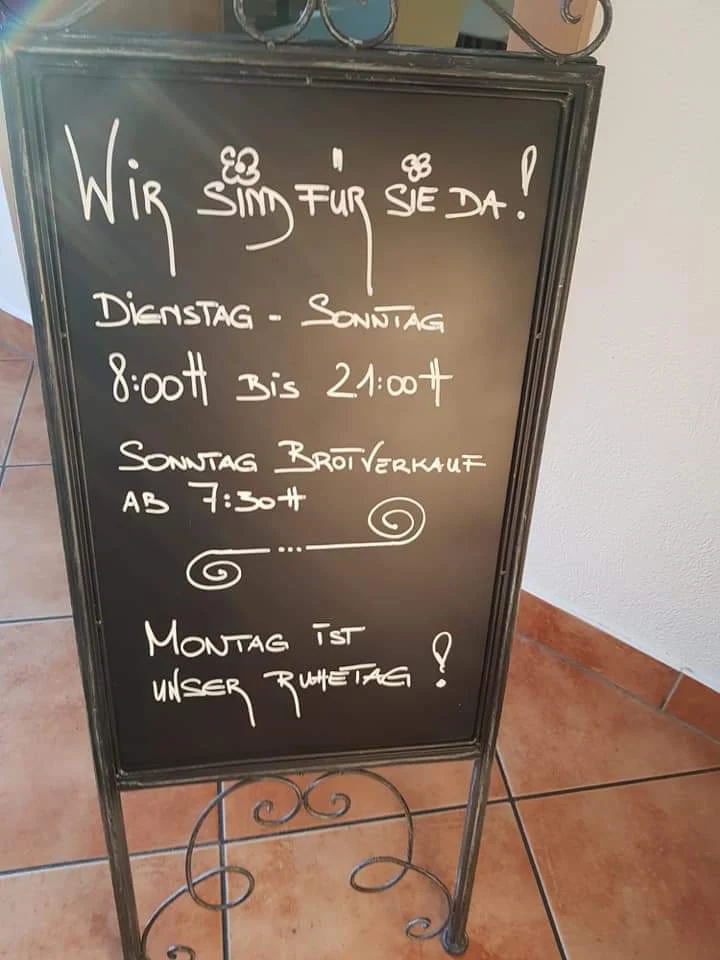 WiR SIND FÜR SIE DA!
DiENSTAG - SONNTAG
8:00H BiS 21:00H
SONNTAG BROTVERKAUF
AB 7:30H
MONTAG iST
UNSER RUHETAG!